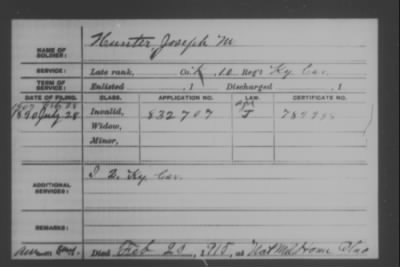 NAME OF SOLDIER: Hunter, Joseph M
SERVICE: Late rank, Co. K, 10 Reg't Ky. Cav.
TERM OF SERVICE: Enlisted , 1 Discharged , 1
DATE OF FILING. CLASS. APPLICATION NO. LAW. CERTIFICATE NO.
1890 July 28 Invalid, 832707 J
Widow,
Minor,
ADDITIONAL SERVICES: Ky. Cav.
REMARKS:
Died Feb 20, 1915, at Nat Mil Home